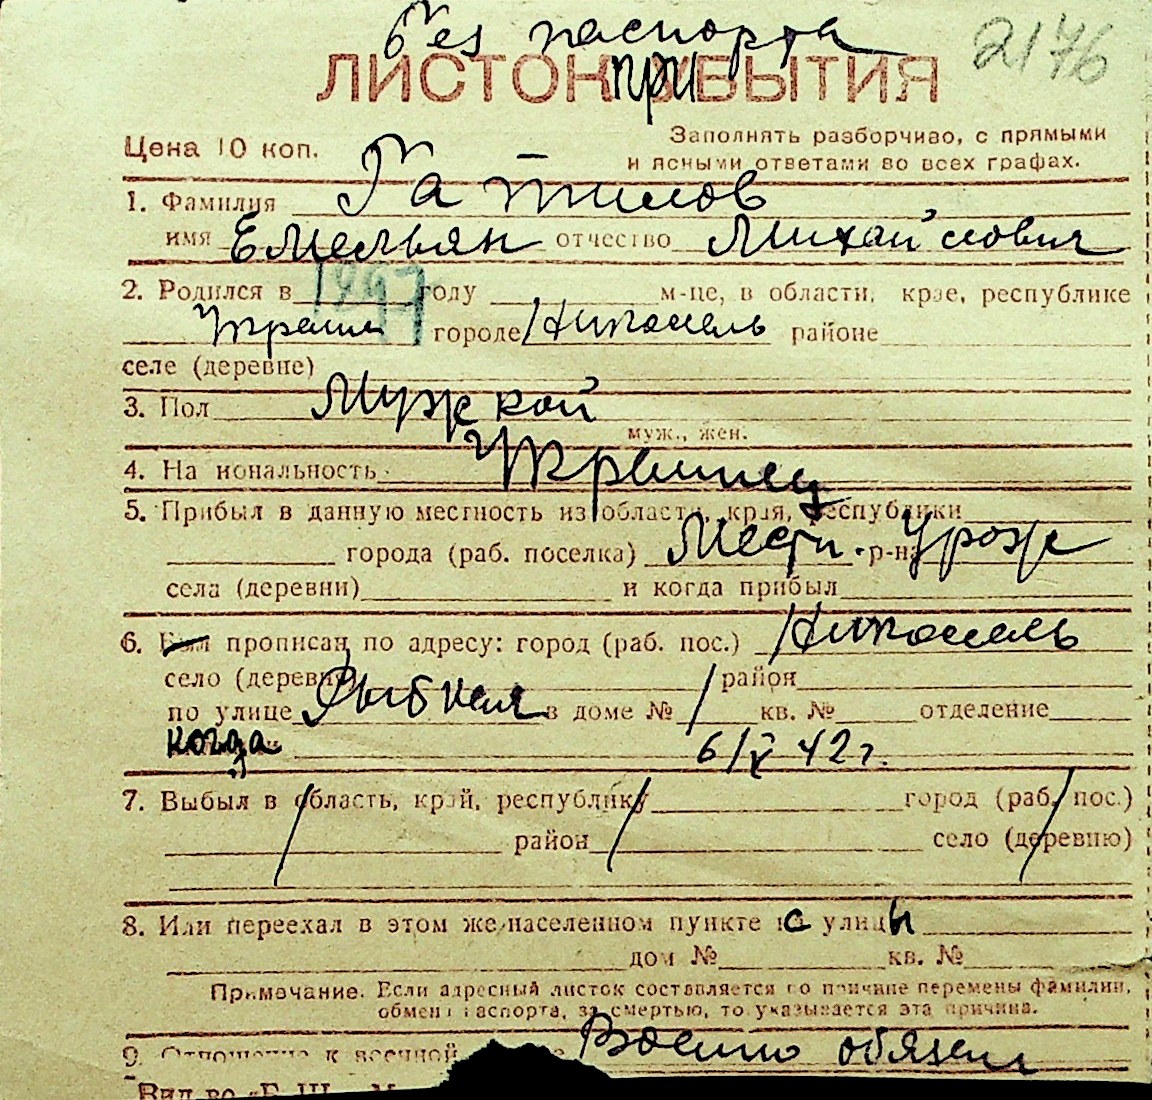 без паспорта 2176
ЛИСТОК ПРИБЫТИЯ
Цена 10 коп. Заполнять разборчиво, с прямыми
и ясными ответами во всех графах.
1. Фамилия Гатилов
имя Емельян отчество Михайлович
2. Родился в 1897 году м-це, в области, крае, республике
Украина городе Никополь районе
селе (деревне)
3. Пол Мужской
муж., жен.
4. Национальность Украинец
5. Прибыл в данную местность из области, края, республики
города (раб. поселка) Местн. р-на урож
села (деревни) и когда прибыл
6. Был прописан по адресу: город (раб. пос.) Никополь
село (деревня) район
по улице Рыбная в доме № 1 кв. № отделение
когда 6/V 42 г.
7. Выбыл в область, край, республику город (раб. пос.)
район село (деревню)
8. Или переехал в этом же населенном пункте с улицы
дом № кв. №
Примечание. Если адресный листок составляется по причине перемены фамилии,
обмена паспорта, за смертью, то указывается эта причина.
9. Отношение к военной Военно обязан